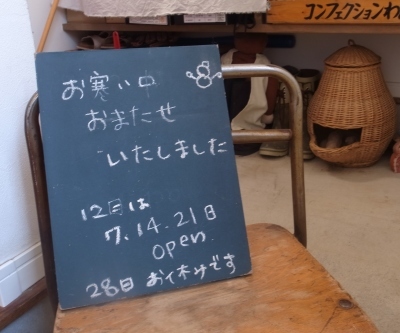 コンフェクションわ
お寒い中
おまたせ
いたしました
12月は
7.14.21日
open
28日 お休みです